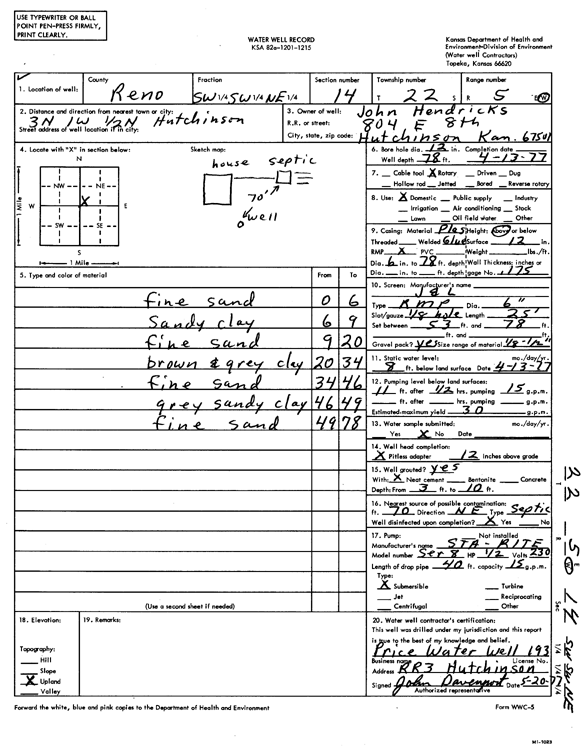 USE TYPEWRITER OR BALL
POINT PEN-PRESS FIRMLY,
PRINT CLEARLY.
WATER WELL RECORD
KSA 82a-1201-1215
Kansas Department of Health and
Environment-Division of Environment
(Water well Contractors)
Topeka, Kansas 66620
1. Location of well: County Reno Fraction SW 1/4 SW 1/4 NE 1/4 Section number 14 Township number T 22 S Range number R 5 E/W
2. Distance and direction from nearest town or city: 3N 1W 1/2N Hutchinson
Street address of well location if in city:
3. Owner of well: John Hendricks
R.R. or street: 804 E 8th
City, state, zip code: Hutchinson Kan. 67501
4. Locate with "X" in section below:
N
NW NE
W X E
SW SE
S
1 Mile
1 Mile
Sketch map:
house septic
70'
well
6. Bore hole dia. 12 in. Completion date
Well depth 78 ft. 4-13-77
7. Cable tool X Rotary Driven Dug
Hollow rod Jetted Bored Reverse rotary
8. Use: X Domestic Public supply Industry
Irrigation Air conditioning Stock
Lawn Oil field water Other
9. Casing: Material Plas Height: Above or below
Threaded Welded Glue Surface 12 in.
RMP X PVC Weight lbs./ft.
Dia. 6 in. to 78 ft. depth Wall Thickness: inches or
Dia. in. to ft. depth gage No. .175
5. Type and color of material From To
fine sand 0 6
Sandy clay 6 9
fine sand 9 20
brown & grey clay 20 34
fine sand 34 46
grey sandy clay 46 49
fine sand 49 78
(Use a second sheet if needed)
10. Screen: Manufacturer's name
J & L
Type RMP Dia. 6"
Slot/gauze 1/8 hole Length 25'
Set between 53 ft. and 78 ft.
ft. and ft.
Gravel pack? yes Size range of material 1/8-1/2"
11. Static water level: mo./day/yr.
8 ft. below land surface Date 4-13-77
12. Pumping level below land surfaces:
11 ft. after 1/2 hrs. pumping 15 g.p.m.
ft. after hrs. pumping g.p.m.
Estimated maximum yield 30 g.p.m.
13. Water sample submitted: mo./day/yr.
Yes X No Date
14. Well head completion:
X Pitless adapter 12 Inches above grade
15. Well grouted? yes
With: X Neat cement Bentonite Concrete
Depth: From 3 ft. to 10 ft.
16. Nearest source of possible contamination:
ft. 70 Direction NE Type Septic
Well disinfected upon completion? X Yes No
17. Pump: Not installed
Manufacturer's name STA-RITE
Model number Ser 8 HP 1/2 Volts 230
Length of drop pipe 40 ft. capacity 15 g.p.m.
Type:
X Submersible Turbine
Jet Reciprocating
Centrifugal Other
18. Elevation:
19. Remarks:
Topography:
Hill
Slope
X Upland
Valley
20. Water well contractor's certification:
This well was drilled under my jurisdiction and this report
is true to the best of my knowledge and belief.
Price Water Well 193
Business name License No.
Address RR3 Hutchinson
Signed John Davenport Date 5-20-77
Authorized representative
22 - 5W 14 SW SW NE
T R E Sec 1/4 1/4 1/4
Forward the white, blue and pink copies to the Department of Health and Environment
Form WWC-5